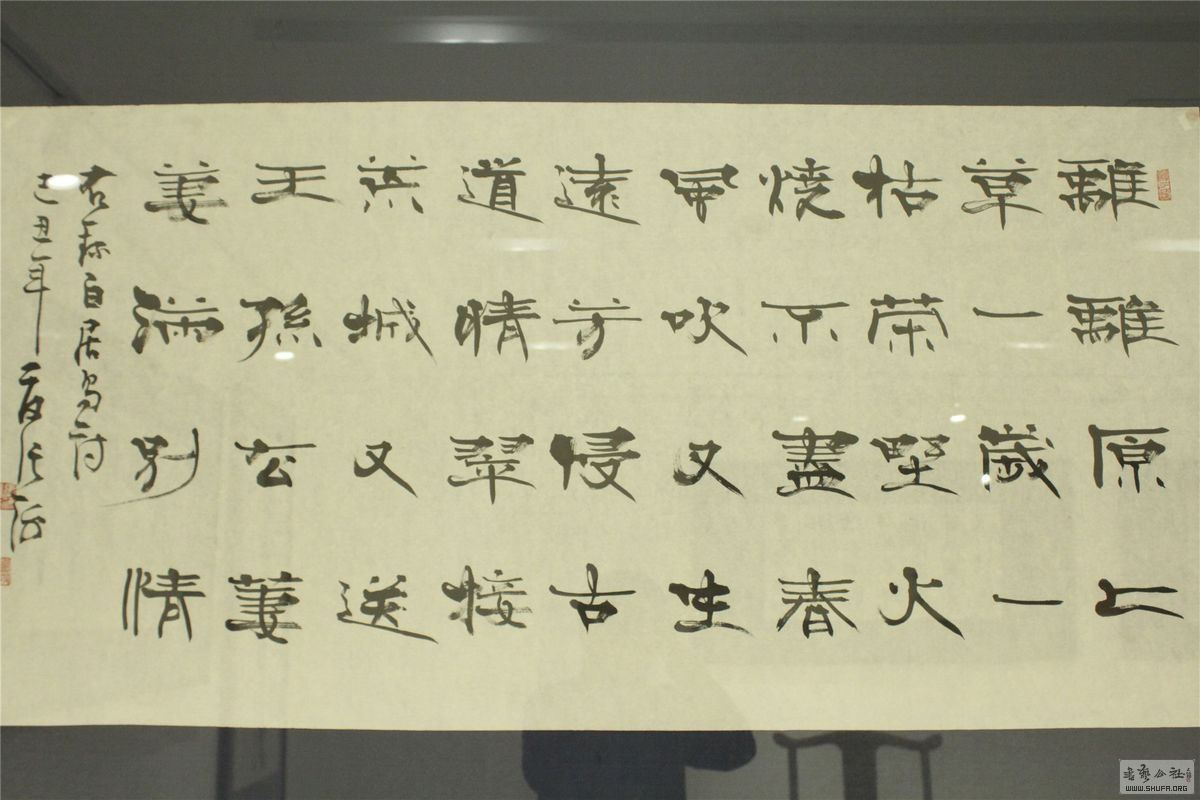 離離原上
草一歲一
枯荣野火
燒不盡春
風吹又生
遠芳侵古
道情翠接
荒城又送
王孫去萋
萋滿別情
右錄白居易詩
己丑年
書藝公社
WWW.SHUFA.ORG